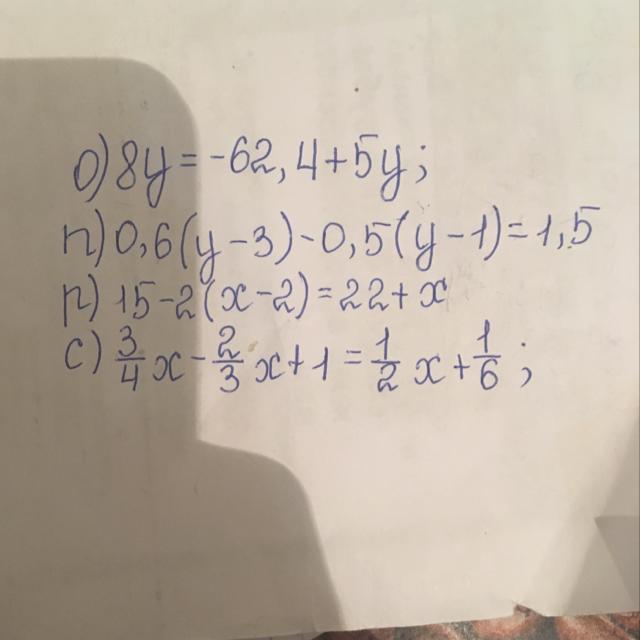 о) 8y = -62,4 + 5y;
п) 0,6(y - 3) - 0,5(y - 1) = 1,5
р) 15 - 2(x - 2) = 22 + x
с) 3/4 x - 2/3 x + 1 = 1/2 x + 1/6 ;